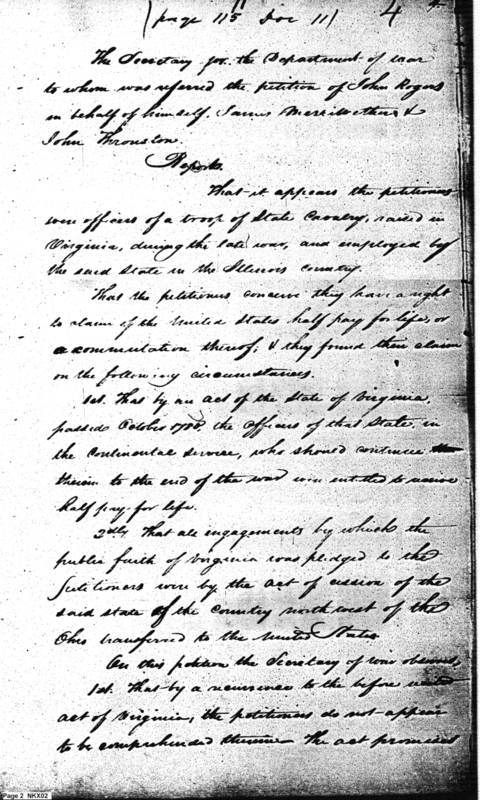 (page 115 Doc 11) 4
The Secretary for the Department of war
to whom was referred the petition of John Rogers
in behalf of himself, James Merriwether &
John Thruston.
Reports.
That it appears the petitioners
were officers of a troop of State Cavalry, raised in
Virginia, during the late war, and employed by
the said State in the Illinois Country.
That the petitioners conceive they have a right
to claim of the United States half pay for life, or
a commutation thereof; & they found their claim
on the following circumstances.
1st. That by an act of the State of Virginia,
passed October 1780, the officers of that State, in
the Continental Service, who should continue
therein to the end of the war were entitled to receive
half pay, for life.
2dly. That all engagements by which the
public faith of Virginia was pledged to the
petitioners were by the act of cession of the
said state of the Country north west of the
Ohio transferred to the United States
On this petition the Secretary of war observes,
1st. That by a recurrence to the before recited
act of Virginia, the petitioners do not appear
to be comprehended therein – The act promises
Page 2 NKX02